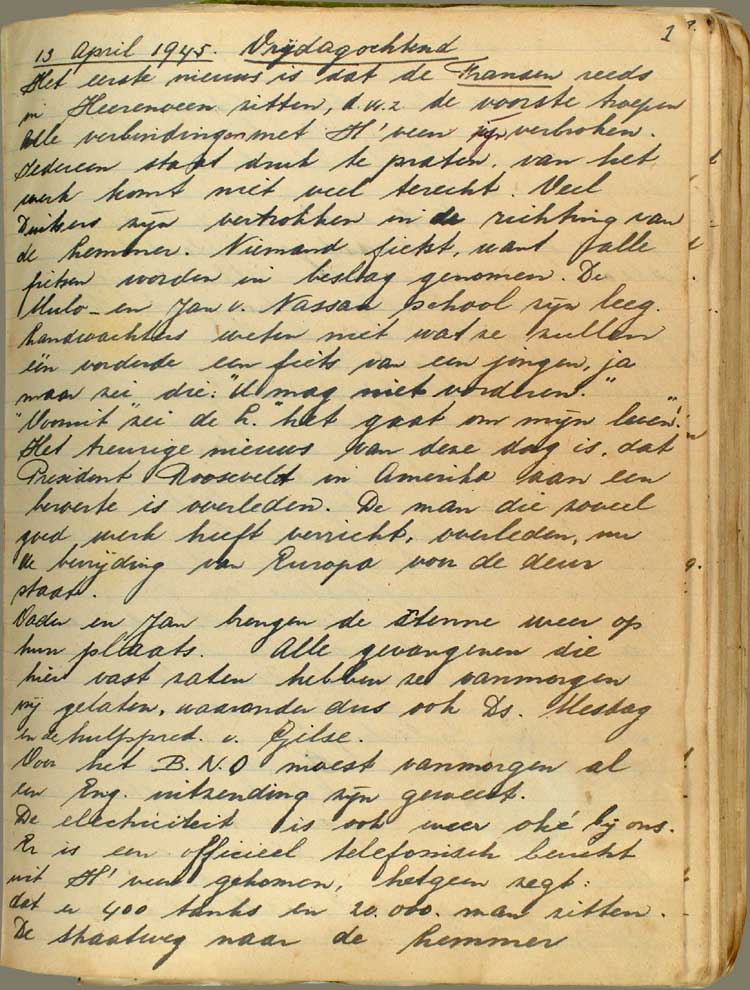 1
13 April 1945. Vrijdagochtend
Het eerste nieuws is dat de Fransen reeds
in Heerenveen zitten, d.w.z de voorste troepen
Alle verbindingen met H'veen zijn verbroken.
Iedereen staat druk te praten, van het
werk komt niet veel terecht. Veel
Duitsers zijn vertrokken in de richting van
de Lemmer. Niemand fietst, want alle
fietsen worden in beslag genomen. De
Mulo- en Jan v. Nassau school zijn leeg.
Landwachters weten niet wat ze zullen
één vorderde een fiets van een jongen, ja
maar zei die: "U mag niet vorderen."
"Vooruit" zei de L. "het gaat om mijn leven!"
Het treurige nieuws van deze dag is, dat
President Roosevelt in Amerika aan een
beroerte is overleden. De man die zoveel
goed werk heeft verricht, overleden, nu
de bevrijding van Europa voor de deur
staat.
Vader en Jan brengen de antenne weer op
hun plaats. Alle gevangenen die
hier vast zaten hebben ze vanmorgen
vrij gelaten, waaronder dus ook Ds. Mesdag
en de hulppred. v. Gilse.
Voor het B.N.O moest vanmorgen al
een Eng. uitzending zijn geweest.
De electriciteit is ook weer oké bij ons.
Er is een officieel telefonisch bericht
uit H'veen gekomen, hetgeen zegt:
dat er 400 tanks en 20.000. man zitten.
De straatweg naar de Lemmer